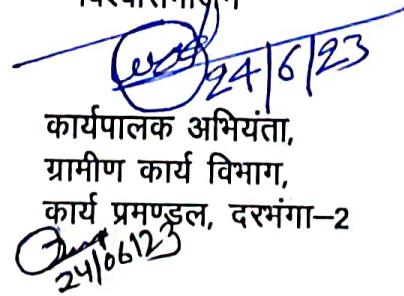 24/6/23
कार्यपालक अभियंता,
ग्रामीण कार्य विभाग,
कार्य प्रमण्डल, दरभंगा–2
24/06/23